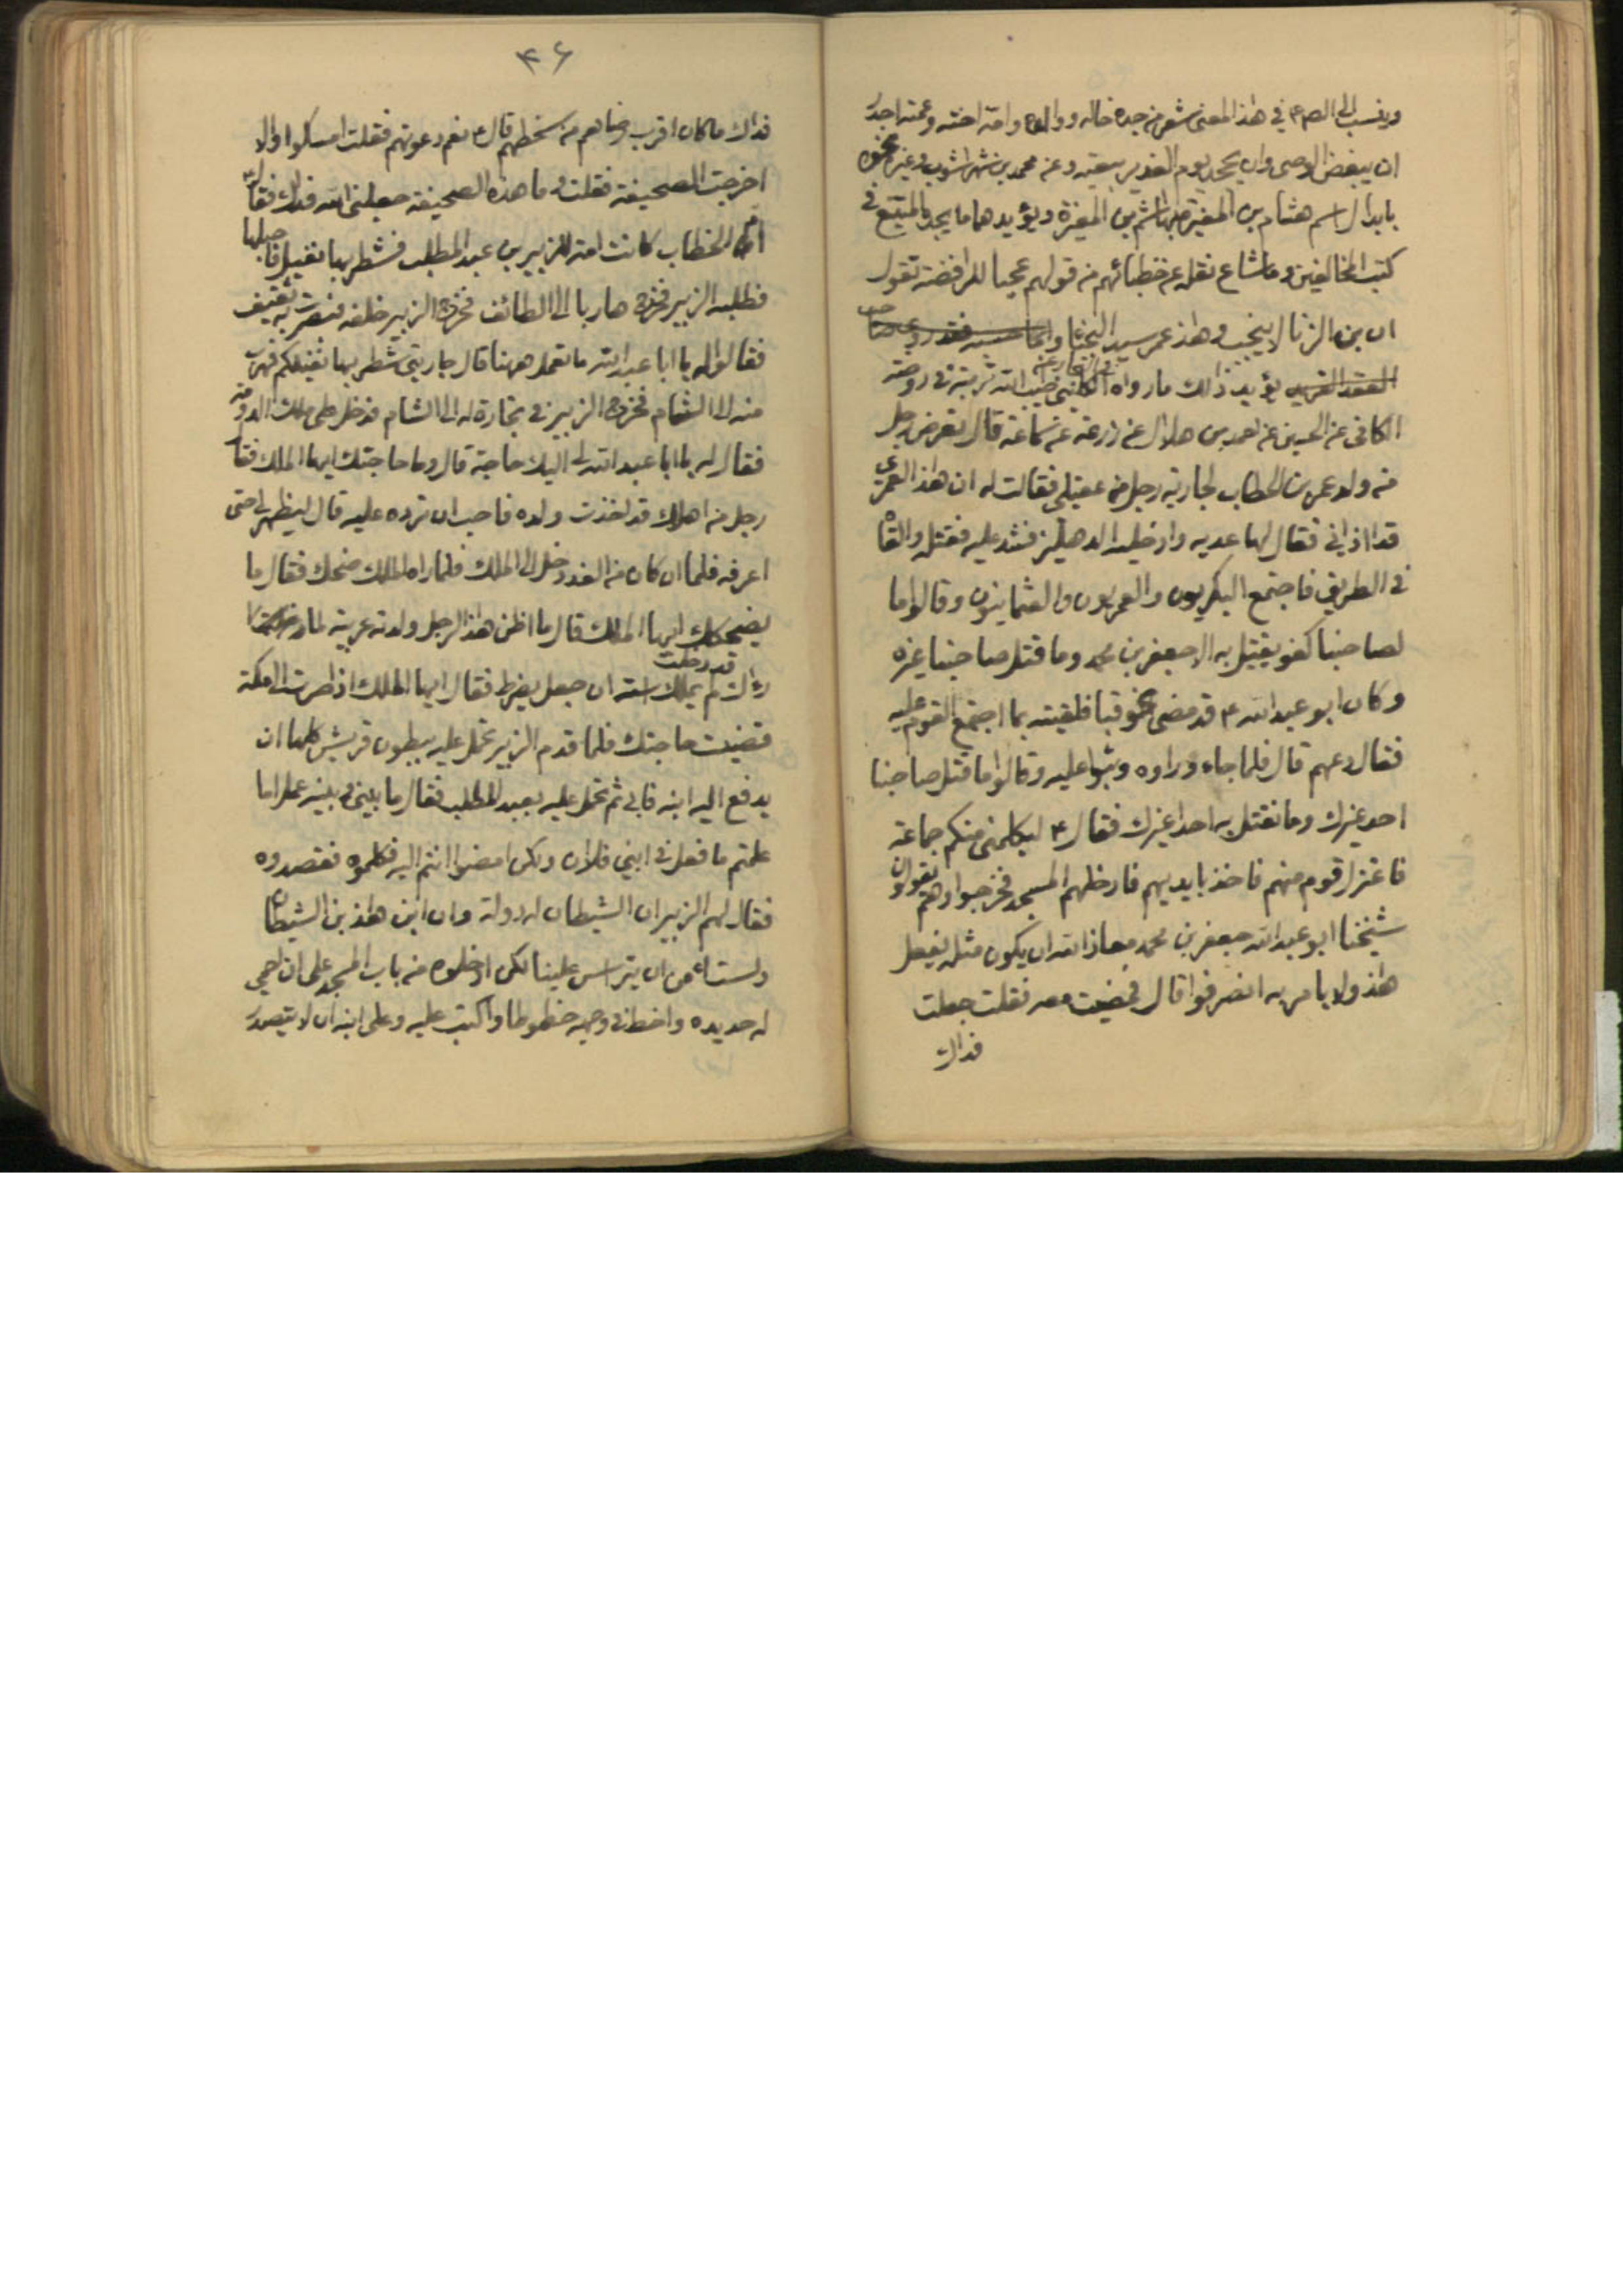 وينسب الى الصم ع في هذا المعنى شعر من جده خاله ووالده وامه اخته وعمته اجدر
ان يبغض الوصى وان يجحد يوم الغدير بيعته وعن محمد بن شهراشوب وغيره نحوه
بابدال اسم هشام بن المغيرة بهاشم بن المغيرة ويؤيدهما ما يجده المتتبع في
كتب المخالفين وما شاع نقله عن خطبائهم من قولهم عجبا للرافضة تقول
ان بن الزنا لا ينجب وهذا عمر سيد النجبا
يؤيد ذلك ما رواه الكلينى طيب الله تربته في روضة
الكافى عن الحسين عن احمد بن هلال عن زرعة عن سماعة قال تعرض رجل
من ولد عمر بن الخطاب لجارية رجل من عقيلى فقالت له ان هذا العمرى
قد اذانى فقال لها عديه وادخليه الدهليز فشد عليه فقتله والقاه
في الطريق فاجتمع البكريون والعمريون والعثمانيون وقالوا ما
لصاحبنا كفو يقتل به الا جعفر بن محمد وما قتل صاحبنا غيره
وكان ابو عبد الله ع قد مضى نحو قبا فلقيته بما اجتمع القوم عليه
فقال دعهم قال فلما جاء وراوه وثبوا عليه وقالوا ما قتل صاحبنا
احد غيرك وما نقتل به احدا غيرك فقال ع ليكلمنى منكم جماعة
فاعتزل قوم منهم فاخذ بايديهم فادخلهم المسجد فخرجوا وهم يقولون
شيخنا ابو عبد الله جعفر بن محمد معاذ الله ان يكون مثله يفعل
هذا ولا يامر به انصرفوا قال فمضيت معه فقلت جعلت
فداك
۴۶
فداك ما كان اقرب رضاهم من سخطهم قال ع نعم دعوتهم فقلت امسكوا والا
اخرجت الصحيفة فقلت و ما هذه الصحيفة جعلنى الله فداك فقال
ام الخطاب كانت امة للزبير بن عبد المطلب فشطر بها نفيل فاحبلها
فطلبه الزبير فخرج هاربا الى الطائف فخرج الزبير خلفه فبصرت به ثقيف
فقالوا له يا ابا عبد الله ما تعمل ههنا قال جاريتى شطر بها نفيلكم فهرب
منه الى الشام فخرج الزبير في تجارة له الى الشام فدخل على ملك الدومة
فقال له يا ابا عبد الله لى اليك حاجة قال وما حاجتك ايها الملك فقال
رجل من اهلك قد اخذت ولده فاحب ان ترده عليه قال ليظهر لى حتى
اعرفه فلما ان كان من الغد دخل الى الملك فلما راه الملك ضحك فقال ما
يضحكك ايها الملك قال ما اظن هذا الرجل ولدته عربية لما
راك قد دخلت لم يملك استه ان جعل يضرط فقال ايها الملك اذا صرت الى مكة
قضيت حاجتك فلما قدم الزبير تحمل عليه ببطون قريش كلها ان
يدفع اليه ابنه فابى ثم تحمل عليه بعبد المطلب فقال ما بينى وبينه عمل اما
علمتم ما فعل في ابنى فلان ولكن امضوا انتم اليه فكلموه فقصدوه
فقال لهم الزبير ان الشيطان له دولة وان ابن هذا بن الشيطان
ولست امن ان يتراس علينا لكن ادخلوه من باب المسجد على ان احمى
له حديده واخط في وجهه خطوطا واكتب عليه وعلى ابنه ان لا يتصدر